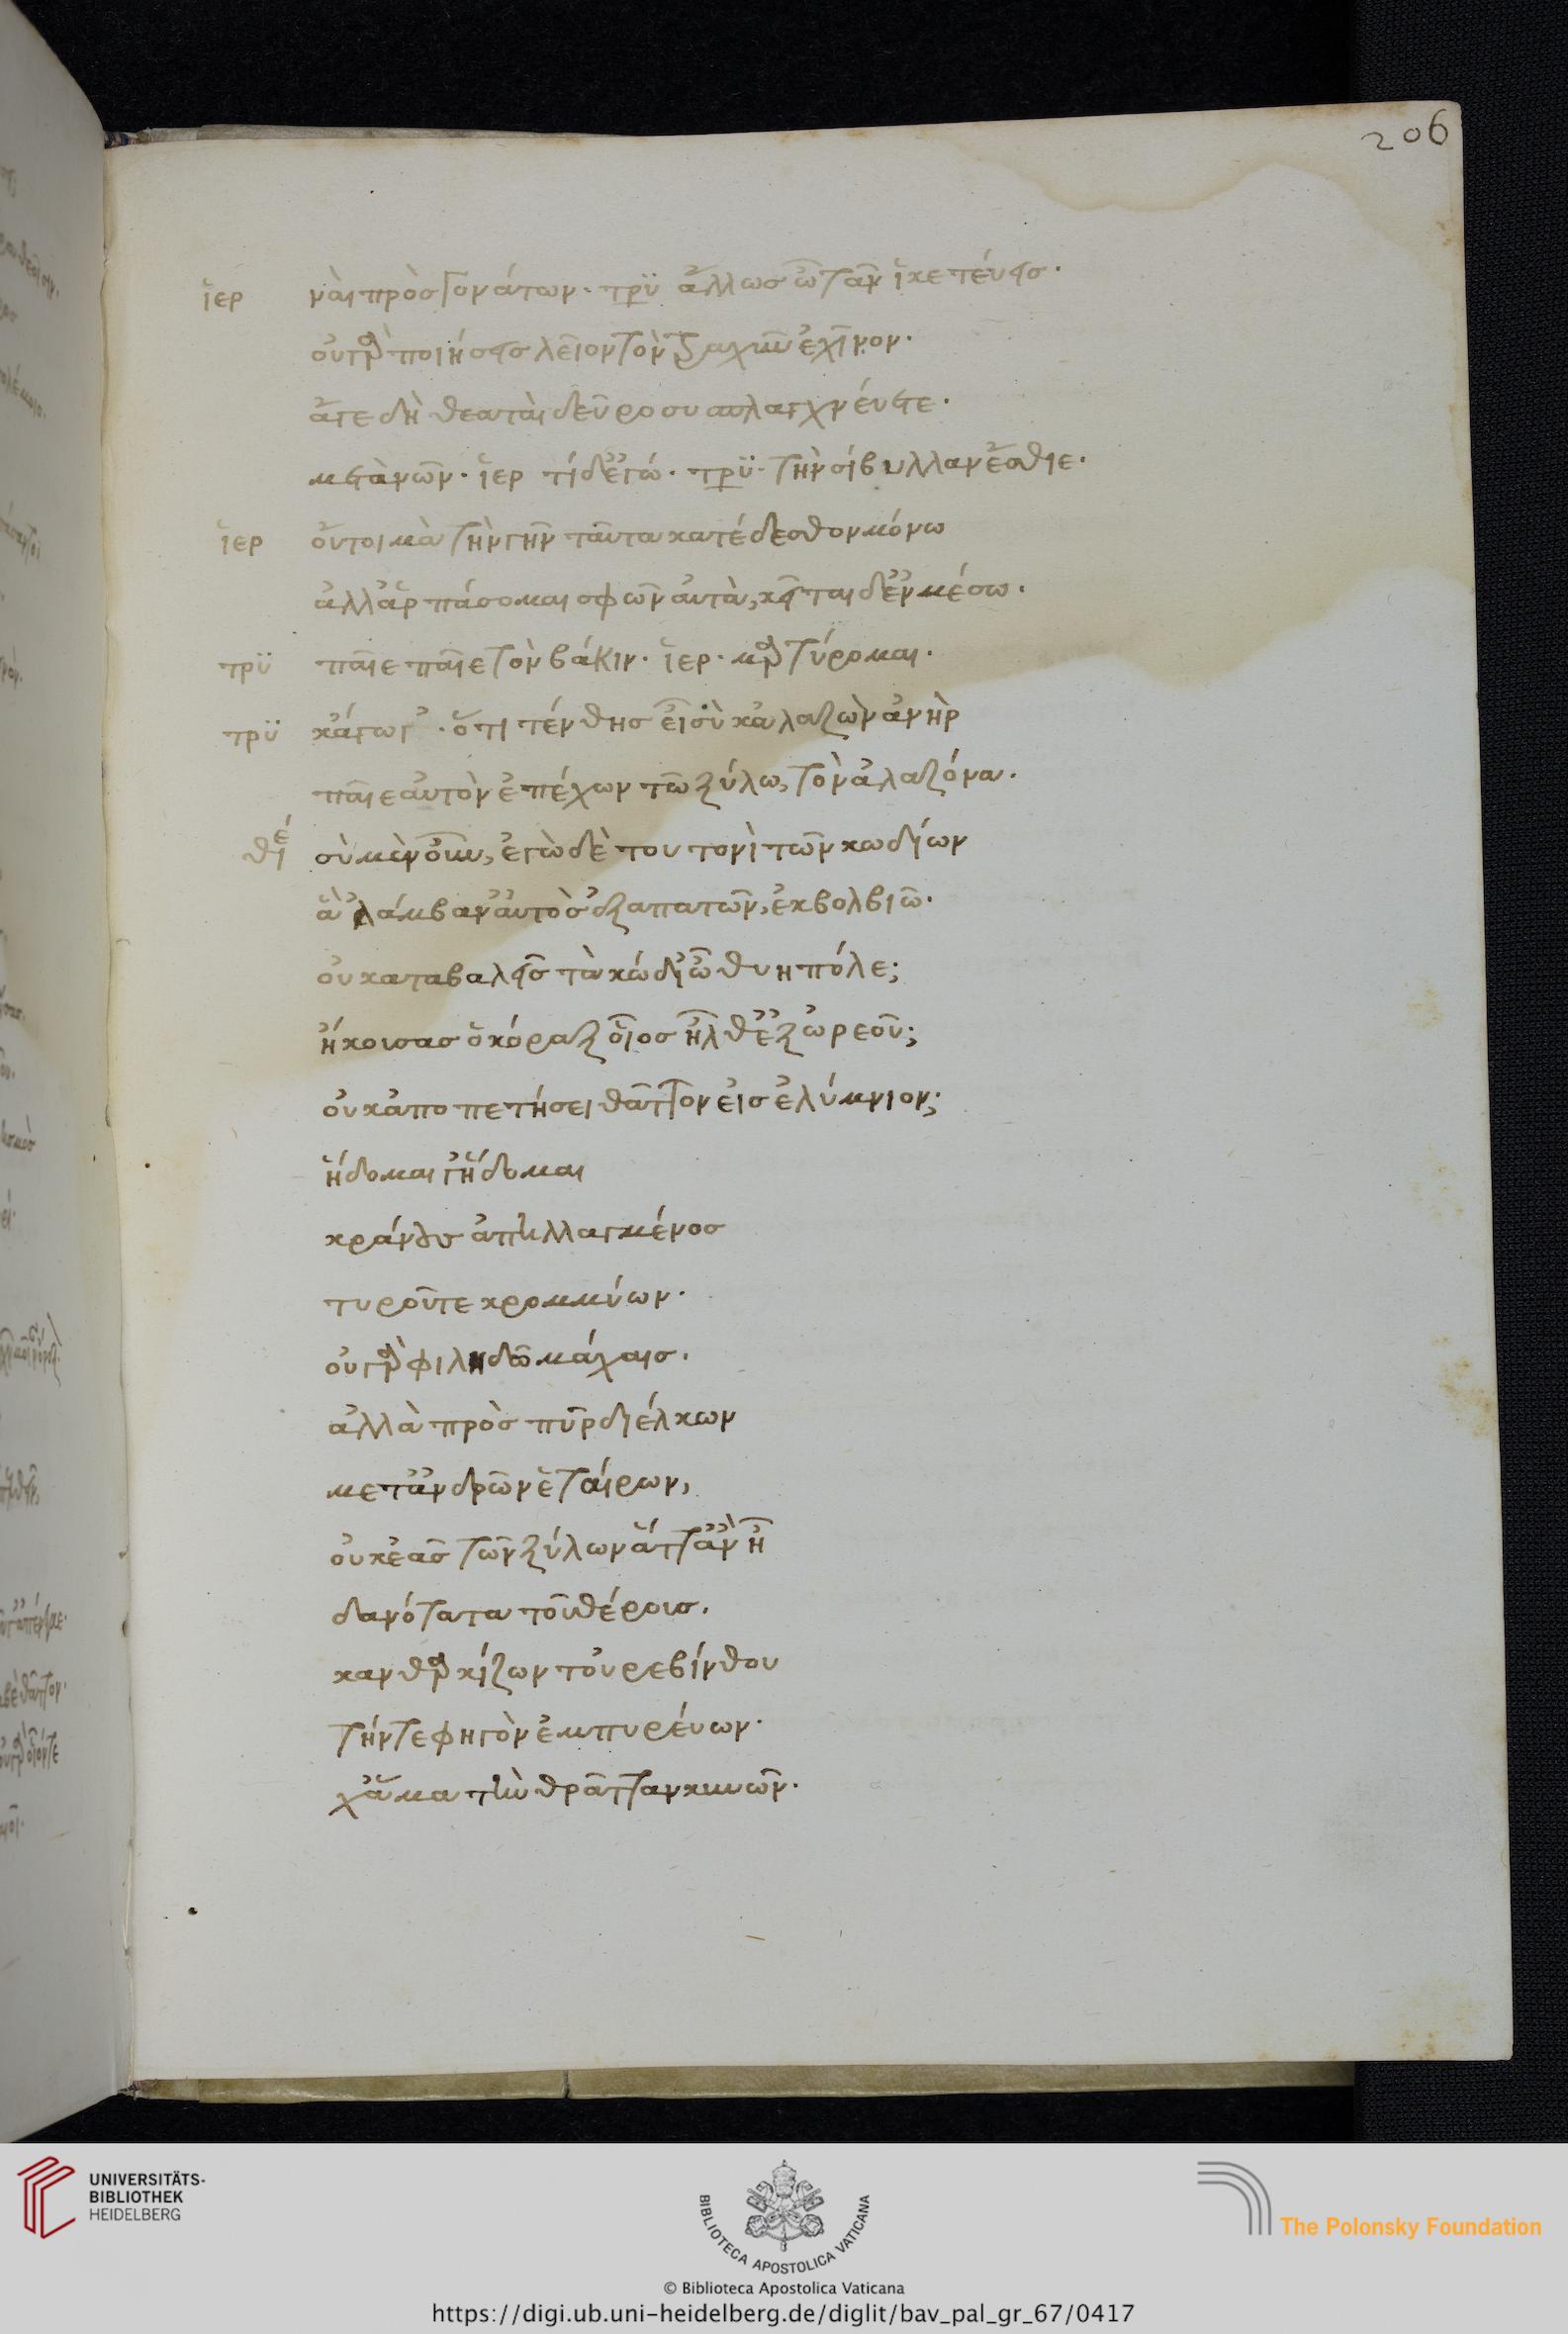 206
ἱερ ναὶ πρὸς γονάτων. τρυ ἄλλως ὦ τᾶν ἱκετεύεις.
οὐ γὰρ ποιήσεις λεῖον τὸν τραχὺν ἐχῖνον.
ἄγε δὴ θεαταὶ δεῦρο συσπλαγχνεύετε.
μετὰ νῶν. ἱερ τί δ' ἐγώ. τρυ. τὴν σίβυλλαν ἔσθιε.
ἱερ οὔτοι μὰ τὴν γῆν ταῦτα κατέδεσθον μόνω
ἀλλ' ἁρπάσομαι σφῶν αὐτὰ, κεῖται δ' ἐν μέσω.
τρυ παῖε παῖε τὸν βάκιν. ἱερ. μαρτύρομαι.
τρυ κἄγωγ'. ὅτι τένθης εἶ σὺ κἀλαζὼν ἀνὴρ
παῖε αὐτὸν ἐπέχων τῶ ξύλω, τὸν ἀλαζόνα.
θε σὺ μὲν οὖν, ἐγὼ δὲ τουτονὶ τῶν κωδίων
ἃ 'λάμβαν' αὐτὸς ἐξαπατῶν, ἐκβολβιῶ.
οὐ καταβαλεῖς τὰ κώδι' ὦ θυηπόλε;
ἤκουσας ὁ κόραξ οἷος ἦλθ' ἐξ ὠρεοῦ;
οὐκ ἀποπετήσει θᾶττον εἰς ἐλύμνιον;
ἥδομαι γ' ἥδομαι
κράνους ἀπηλλαγμένος
τυροῦ τε κρομμύων.
οὐ γὰρ φιληδῶ μάχαις.
ἀλλὰ πρὸς πῦρ διέλκων
μετ' ἀνδρῶν ἑταίρων,
οὐκ ἐᾶς τῶν ξύλων ἅττ' ἂν ἦ
δανότατα τοῦ θέρους.
κανθρακίζων τοὐρεβίνθου
τήν τε φηγὸν ἐμπυρεύων.
χἄμα τὴν θρᾶτταν κυνῶν.
UNIVERSITÄTS-
BIBLIOTHEK
HEIDELBERG
BIBLIOTECA APOSTOLICA VATICANA
The Polonsky Foundation
© Biblioteca Apostolica Vaticana
https://digi.ub.uni-heidelberg.de/diglit/bav_pal_gr_67/0417